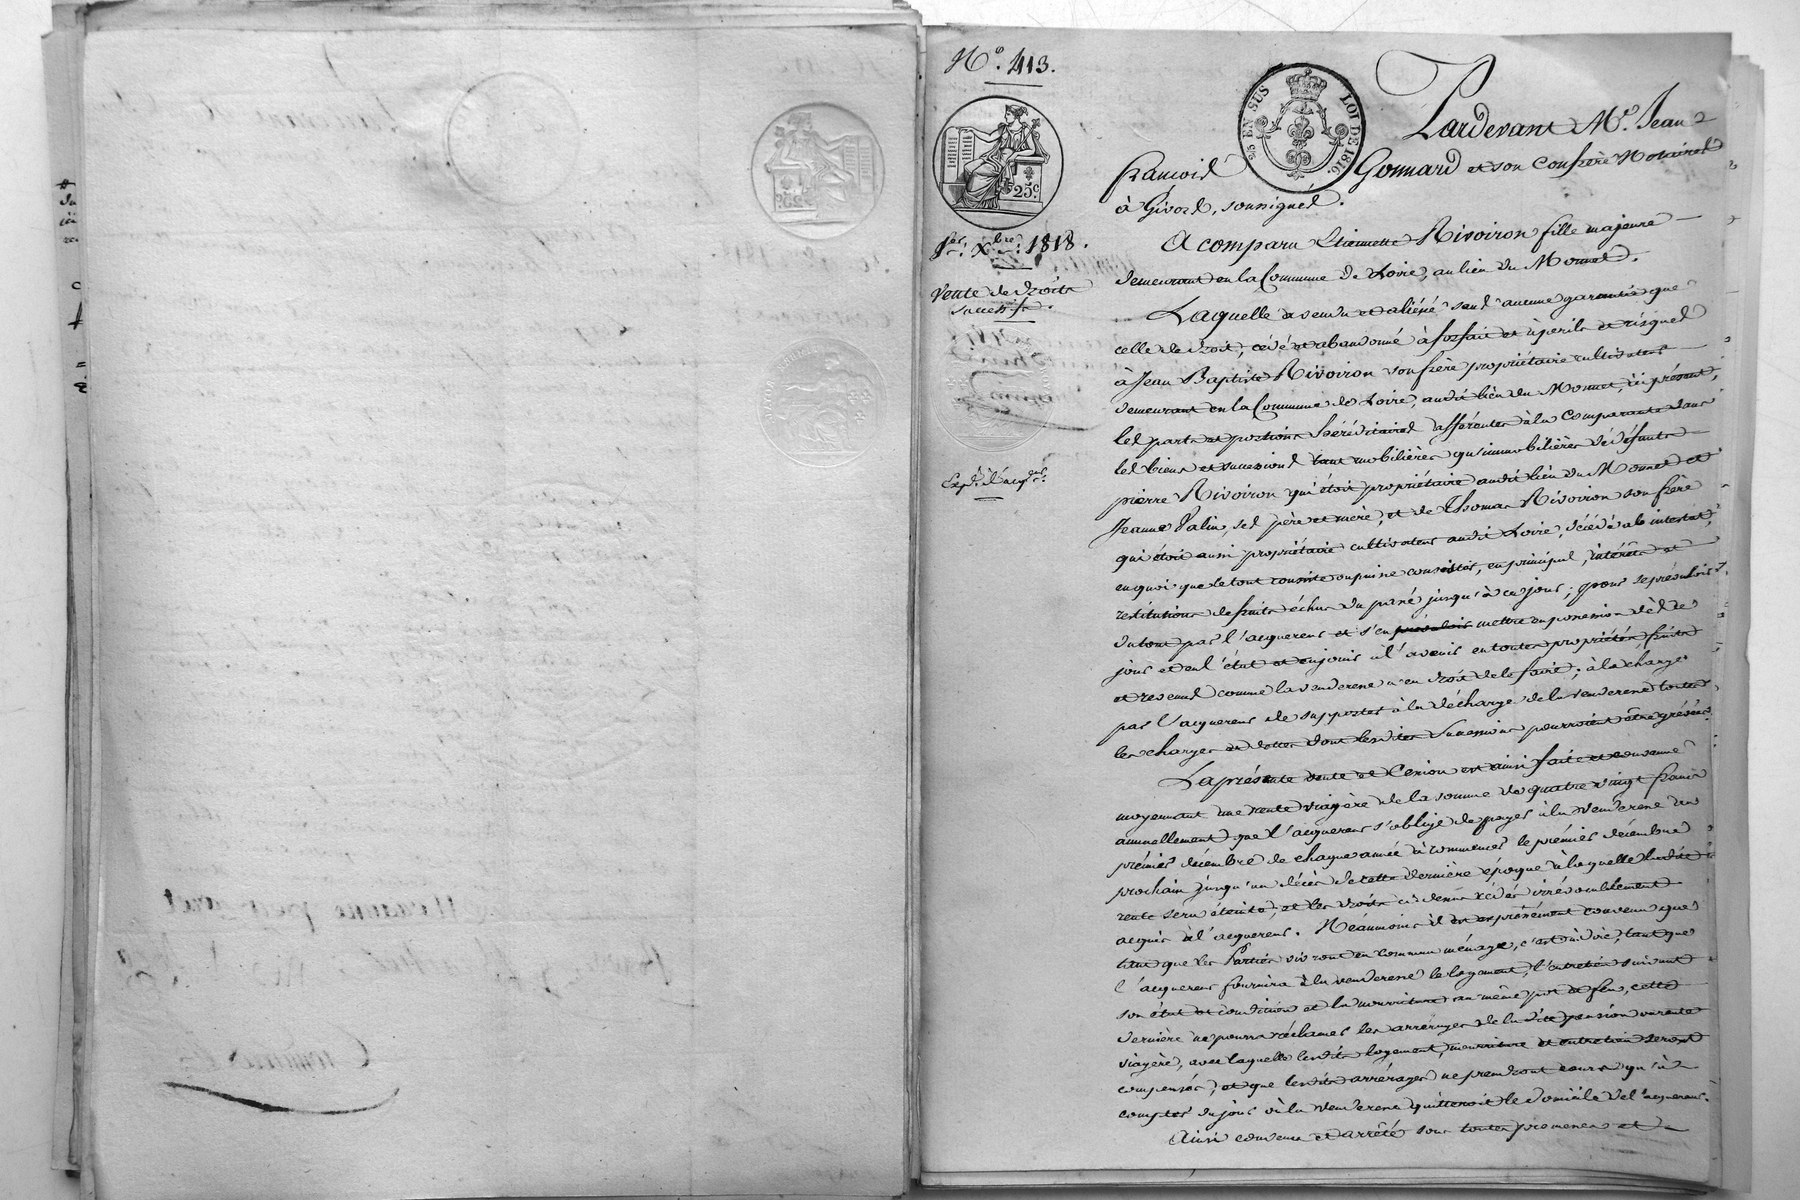 N.° 413.
2/5 EN SUS
LOI DE 1816.
25.c
1.er X.bre 1818.
Vente de droits
successifs.
Exp.é à l'acq.
Pardevant M.e Jean
François Gonnard et son confrère Notaires
à Givors, soussignés.
A comparu Etiennette Rivoiron fille majeure
demeurant en la Commune de Loire, au lieu du Monnet.
Laquelle a vendu et aliéné sans aucune garantie que
celle de droit, cédé et abandonné à forfait et à périls et risques
à Jean Baptiste Rivoiron son frère propriétaire cultivateur
demeurant en la Commune de Loire, audit lieu du Monnet, ici présent,
les parts et portions héréditaires afférentes à la comparante dans
les biens et successions tant mobilières qu'immobilières de défunts
pierre Rivoiron qui étoit propriétaire audit lieu du Monnet et
Jeanne Valin, ses père et mère, et de Thomas Rivoiron son frère
qui étoit aussi propriétaire cultivateur audit Loire, décédé ab intestat,
en quoi que le tout consiste ou puisse consister, en principal, intérêts et
restitutions de fruits échus du passé jusqu'à ce jour; pour se prévaloir
du tout par l'acquereur et s'en prévaloir mettre en possession dès ce
jour et en l'état et en jouir à l'avenir en toutes propriétés fruits
et revenus comme la venderesse a en droit de le faire; à la charge
par l'acquereur de supporter à la décharge de la venderesse toutes
les charges et dettes dont lesdites successions pourroient être grévées.
La présente vente et Cession est ainsi faite et convenue
moyennant une rente viagère de la somme de quatre vingt francs
annuellement que l'acquereur s'oblige de payer à la venderesse au
prémier décembre de chaque année à commencer le prémier décembre
prochain jusqu'au décès de cette dernière époque à laquelle ladite
rente sera éteinte, et les droits ci dessus cédés irrévocablement
acquis à l'acquereur. Néanmoins il est expressément convenu que
tant que les Parties vivront en commun ménage, c'est à dire, tant que
l'acquereur fournira à la venderesse le logement, l'entretien suivant
son état et condition et la nourriture au même pot et feu, cette
dernière ne pourra réclamer les arrérages de la dite pension ou rente
viagère, avec laquelle lesdits logement, nourriture et entretien seront
compensés, et que lesdits arrérages ne prendront cours qu'à
compter du jour où la venderesse quitteroit le domicile de l'acquereur.
Ainsi convenu et arrêté sous toutes promesses et